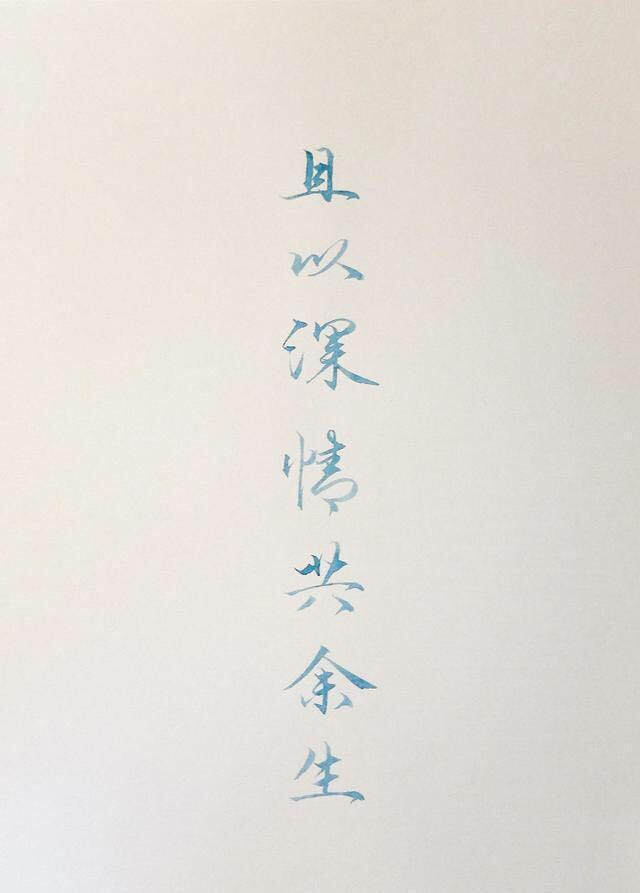 且以深情共余生